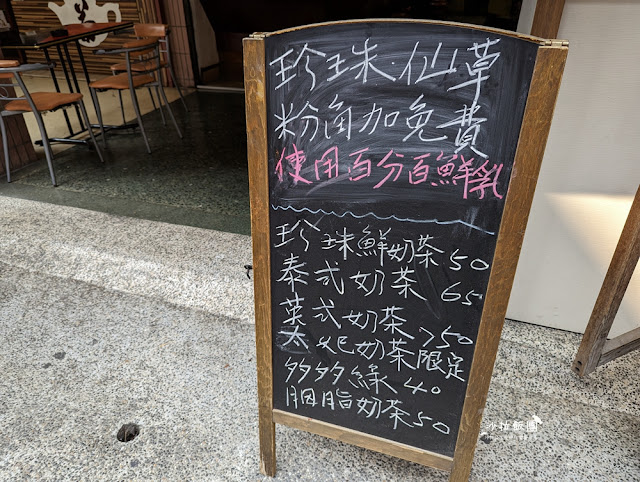 珍珠·仙草
粉角加免費
使用百分百鮮乳
珍珠鮮奶茶 50
泰式奶茶 65
英式奶茶 >50
太妃奶茶限定
多多綠 40
胭脂奶茶 50